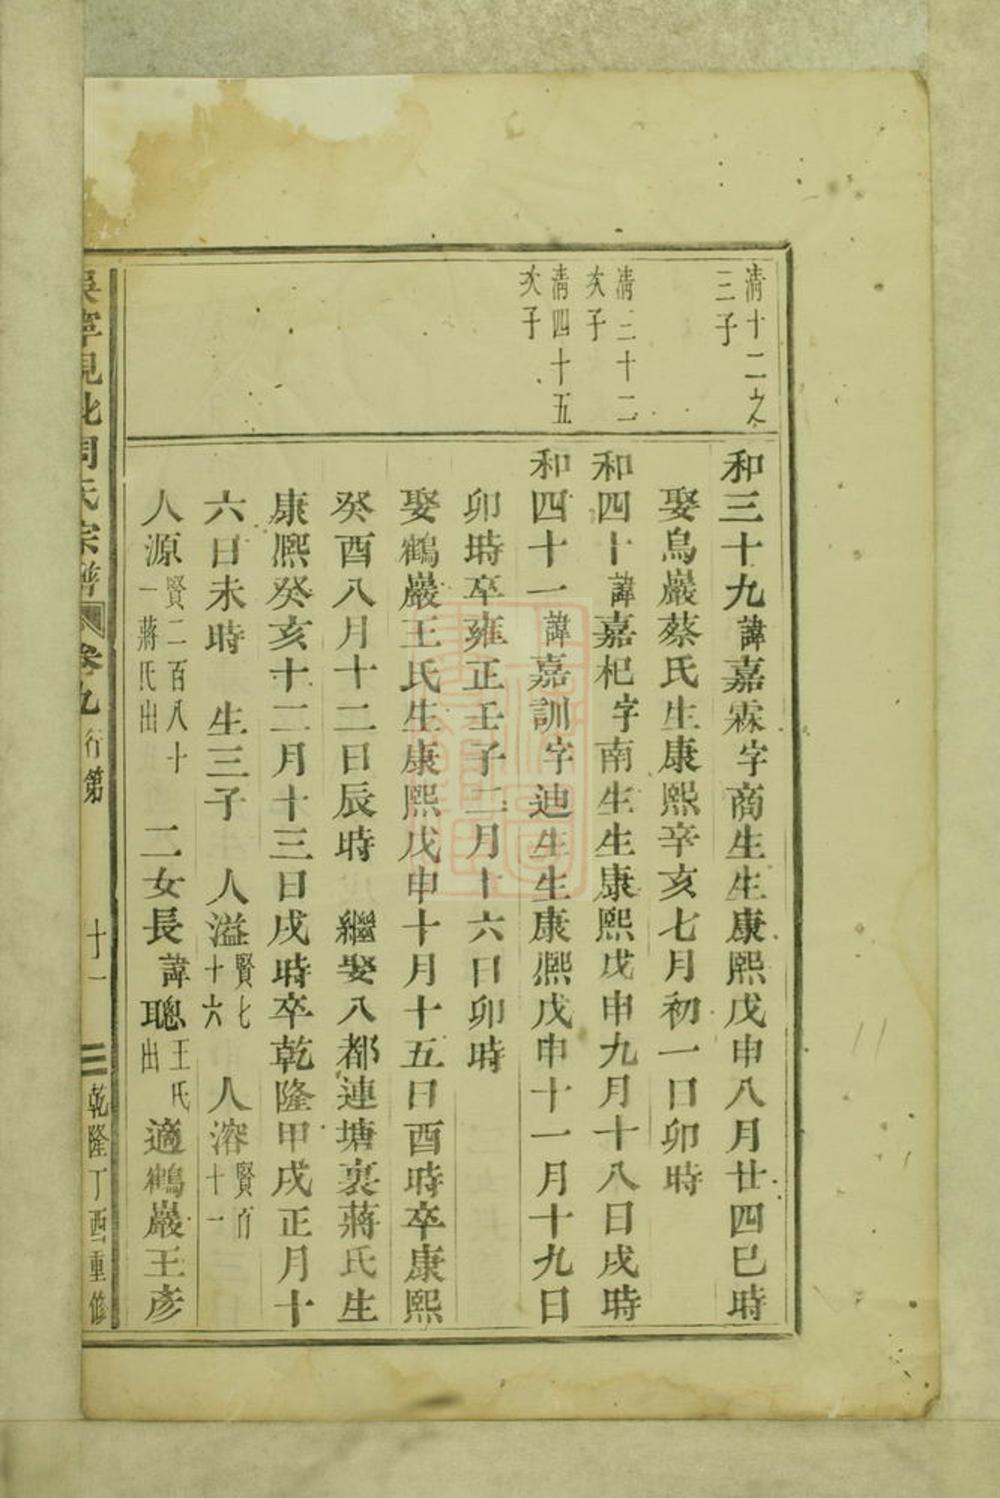 清十二之
三子
清三十二
次子
清四十五
次子
和三十九諱嘉霖字商生生康熙戊申八月廿四巳時
娶烏巖蔡氏生康熙辛亥七月初一日卯時
和四十諱嘉杞字南生生康熙戊申九月十八日戌時
和四十一諱嘉訓字迪生生康熙戊申十一月十九日
卯時卒雍正壬子二月十六日卯時
娶鶴巖王氏生康熙戊申十月十五日酉時卒康熙
癸酉八月十二日辰時 繼娶八都連塘裏蔣氏生
康熙癸亥十二月十三日戌時卒乾隆甲戌正月十
六日未時 生三子 人溢賢七十六 人溶賢百十一
人源賢二百八十一蔣氏出 二女長諱聰王氏出適鶴巖王彥
吳寧峴北周氏宗譜 卷九 行第 十一 乾隆丁酉重修